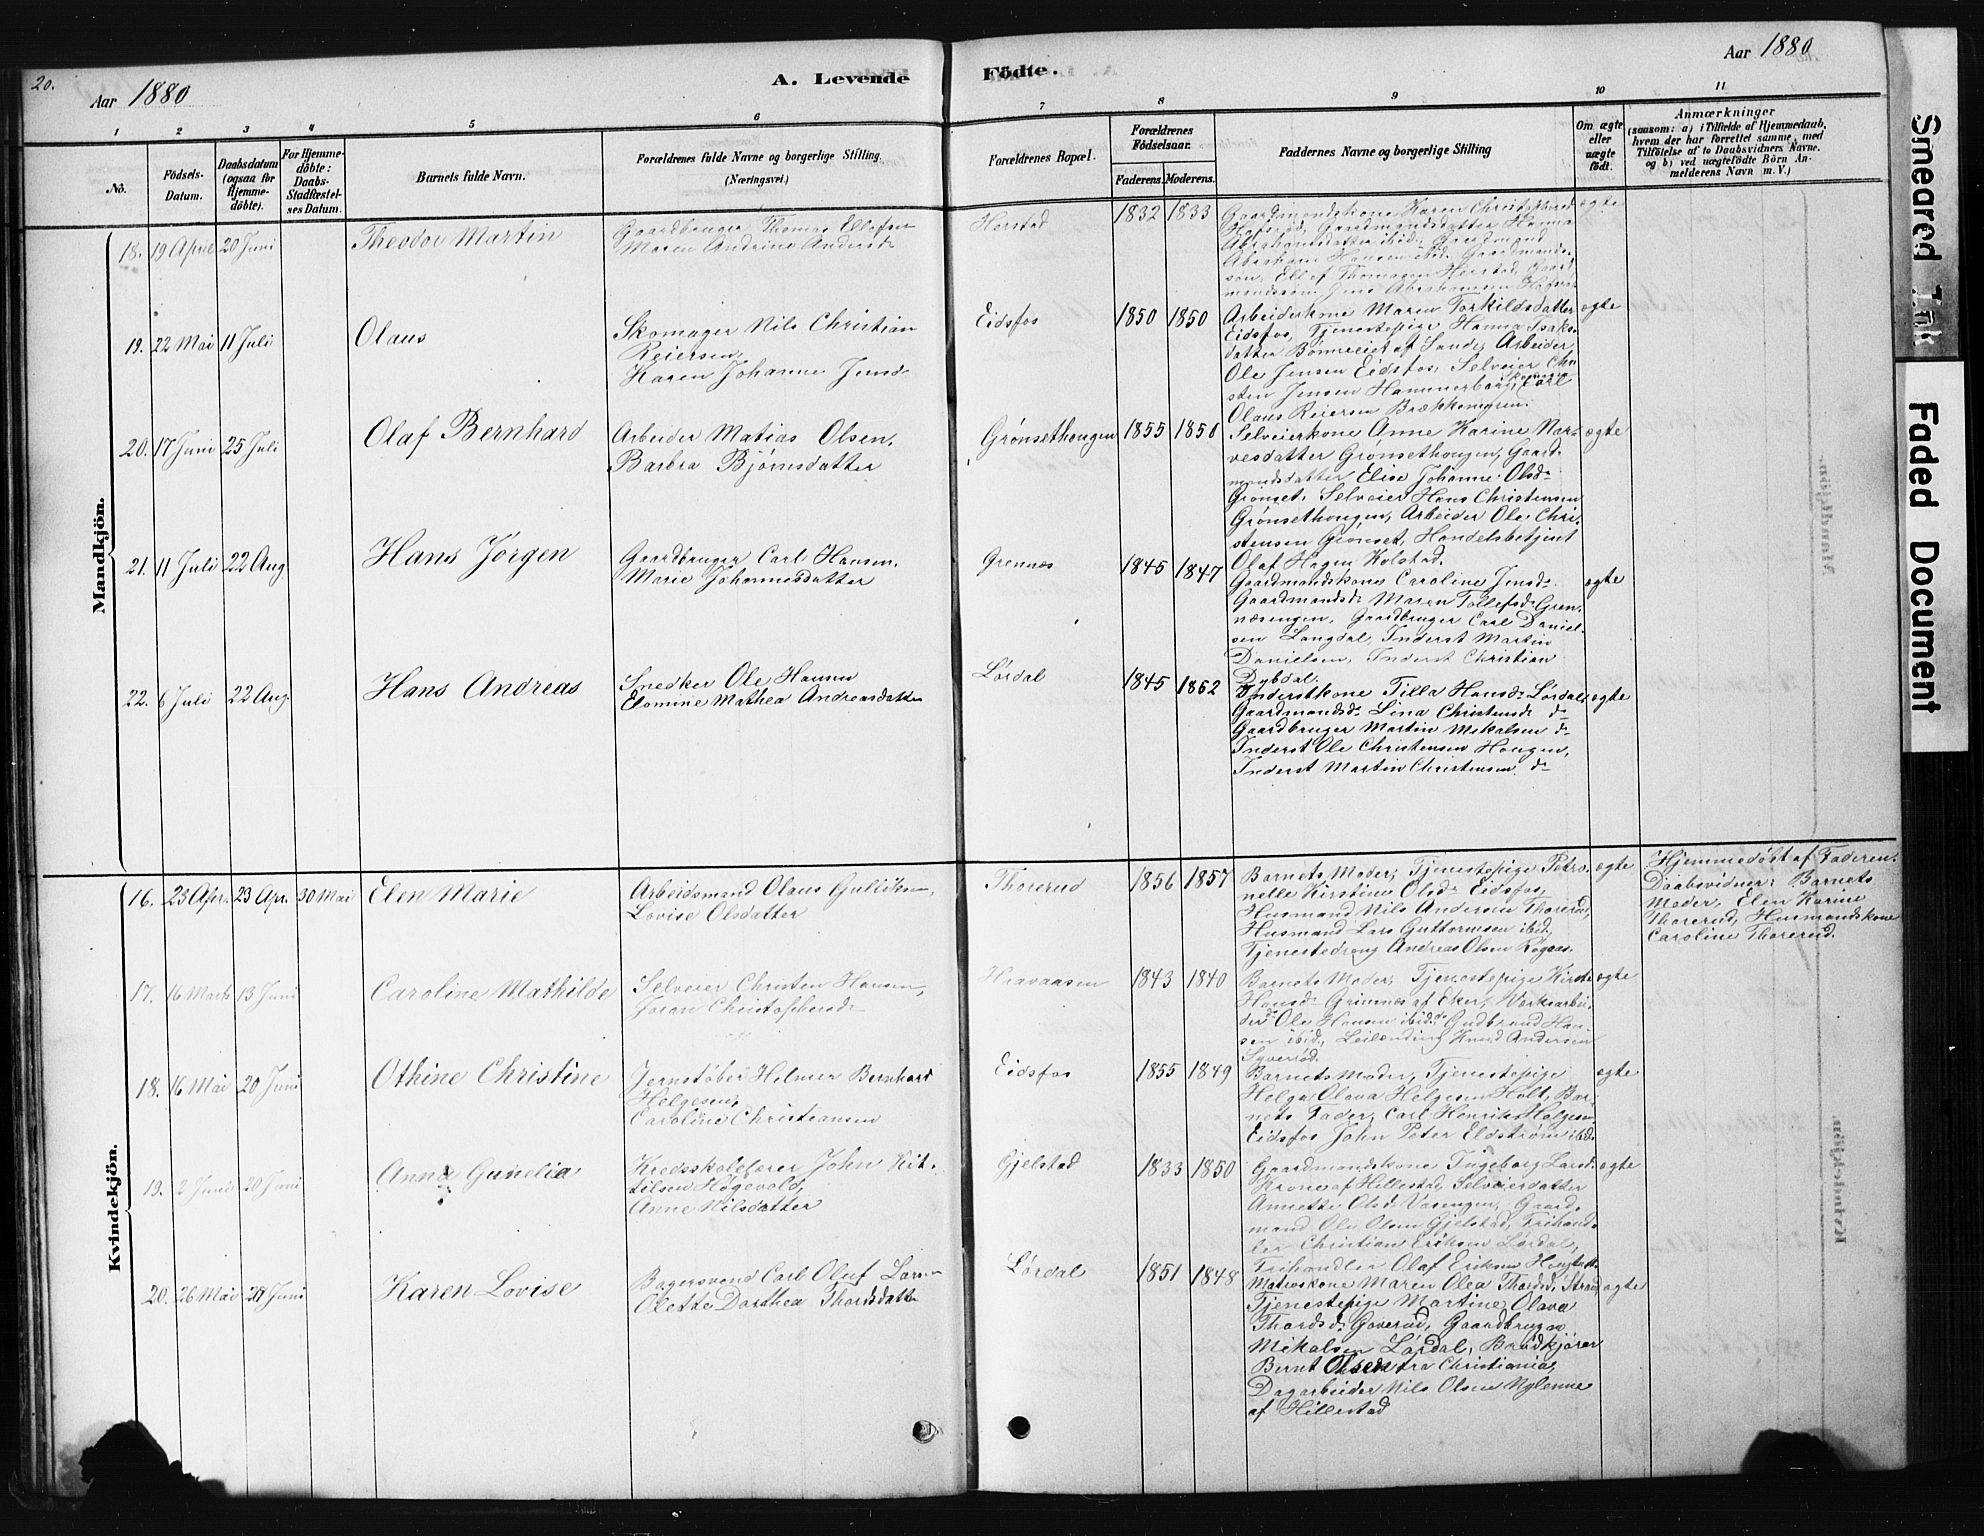 20.
Aar 1880
A. Levende
Födte.
Aar 1880
1 2 3 4 5 6 7 8 9 10 11
No.
Födsels-
Datum.
Daabsdatum
(ogsaa for
Hjemme-
döbte).
For Hjemme-
döbte:
Daabs-
Stadfæstel-
ses Datum.
Barnets fulde Navn.
Forældrenes fulde Navne og borgerlige Stilling
(Næringsvei.)
Forældrenes Bopæl.
Forældrenes
Födselsaar.
Faderens. Moderens.
Faddernes Navne og borgerlige Stilling
Om ægte
eller
uægte
födt.
Anmærkninger
(saasom: a) i Tilfælde af Hjemmedaab,
hvem der har forrettet samme, med
Tilföielse af to Daabsvidners Navne.
og b) ved uægtefödte Börn An-
melderens Navn m. V.)
Mandkjön.
18. 19 April 20 Juni
Theodor Martin
Gaardbruger Thomas Ellefsen
Maren Andrine Andersd:
Herstad
1832 1833
Gaardmandskone Karen Christophersd
Hofsrød, Gaardmandsdatter Hanna
Abrahamsdatter ibid: Gaardmand
Abraham Hansen ibid: Gaardmands-
søn Ellef Thomasen Herstad, Gaard
mandssøn Jens Abrahamsen Hofsrød
ægte
19. 22 Mai 11 Juli
Olaus
Skomager Nils Christian
Reiersen,
Karen Johanne Jensd:
Eidsfos
1850 1850
Arbeiderkone Maren Torkildsdatter
Eidsfos, Tjenestepige Hanna Isaks-
datter Bønneeiet af Sande, Arbeider
Ole Jensen Eidsfos, Selveier Chri
sten Jensen Hammerborg, Carl
Olaus Reiersen Brækkemyren.
ægte
20. 17 Juni 25 Juli
Olaf Bernhard
Arbeider Matias Olsen,
Barbra Bjørnsdatter
Grønsethougen
1855 1850
Selveierkone Anne Karine Nar-
vesdatter Grønsethougen, Gaard-
mandsdatter Elise Johanne Olsd:
Grønset, Selveier Hans Christensen
Grønsethougen, Arbeider Ole Chri-
stensen Grønset, Handelsbetjent
Olaf Hagen Kolstad.
ægte
21. 11 Juli 22 Aug
Hans Jørgen
Gaardbruger Carl Hansen,
Marie Johannesdatter
Grennes
1845 1847
Gaardmandskone Caroline Jensd:
Gaardmandsd: Maren Tollefsd: Gren-
næsengen, Gaardbruger Carl Daniel-
sen Langdal, Inderst Martin
Danielsen, Inderst Christian
Dybdal.
ægte
22. 6 Juli 22 Aug.
Hans Andreas
Snedker Ole Hansen
Elomine Mathea Andreasdatter
Lørdal
1845 1862
Inderstkone Tilla Hansd: Lørdal,
Gaardmandsd: Lina Christensd: d:
Gaardbruger Martin Mikalsen d:
Inderst Ole Christensen Hougen,
Inderst Martin Christensen d:
ægte
Kvindekjön.
16. 23 Apr. 23 Apr. 30 Mai
Elen Marie
Arbeidsmand Olaus Gulliksen,
Lovise Olsdatter
Thorerud
1856 1857
Barnets Moder, Tjenestepige Petro-
nelle Kirstine Olsd: Eidsfos,
Husmand Nils Andersen Thorerud,
Husmand Lars Guttormsen ibid,
Tjenestedreng Andreas Olsen Rogaas.
ægte
Hjemmedøbt af Faderen.
Daabsvidner: Barnets
Moder, Elen Karine
Thorerud, Husmandskone
Caroline Thorerud.
17. 16 Marts 13 Juni
Caroline Mathilde
Selveier Christen Hansen,
Joran Christophersd:
Haavaasen
1843 1840
Barnets Moder, Tjenestepige Kirsti
Hansd: Grimnes af Eker, Værksarbei-
der Ole Hansen ibid: Gudbrand Han-
sen ibid, Leilending Knud Andersen
Syverød.
ægte
18. 16 Mai 20 Juni
Othine Christine
Jernstøber Helmer Bernhard
Helgesen,
Caroline Christiansen
Eidsfos
1855 1849
Barnets Moder, Tjenestepige
Helga Olava Helgesen Holt, Bar-
nets Fader, Carl Henrik Helgesen
Eidsfos John Peter Eldstrøm ibid:
ægte
19. 2 Juni 20 Juni
Anna Gunelia
Kredsskolelærer John Kit-
tilsen Høgevold,
Anne Nilsdatter
Gjelstad
1833 1850
Gaardmandskone Ingeborg Larsd:
Krone af Hillestad, Selveierdatter
Annette Olsd: Vasengen, Gaard-
mand Ole Olsen Gjelstad, Frihand-
ler Christian Eriksen Lørdal,
Frihandler Olaf Eriksen
ægte
20. 26 Mai 20 Juni
Karen Lovise
Bagersvend Carl Oluf Larsen
Olette Dorthea Thordsdatter
Lørdal
1851 1848
Matroskone Maren Olea Thordsd, Strand
Tjenestepige Martine Olava
Thordsd: Goverud, Gaardbruger
Mikalsen Lørdal, Brødkjører
Bernt Olsen fra Christiania,
Dagarbeider Nils Olsen Nylenne
af Hillestad
ægte
Smeared Ink
Faded Document